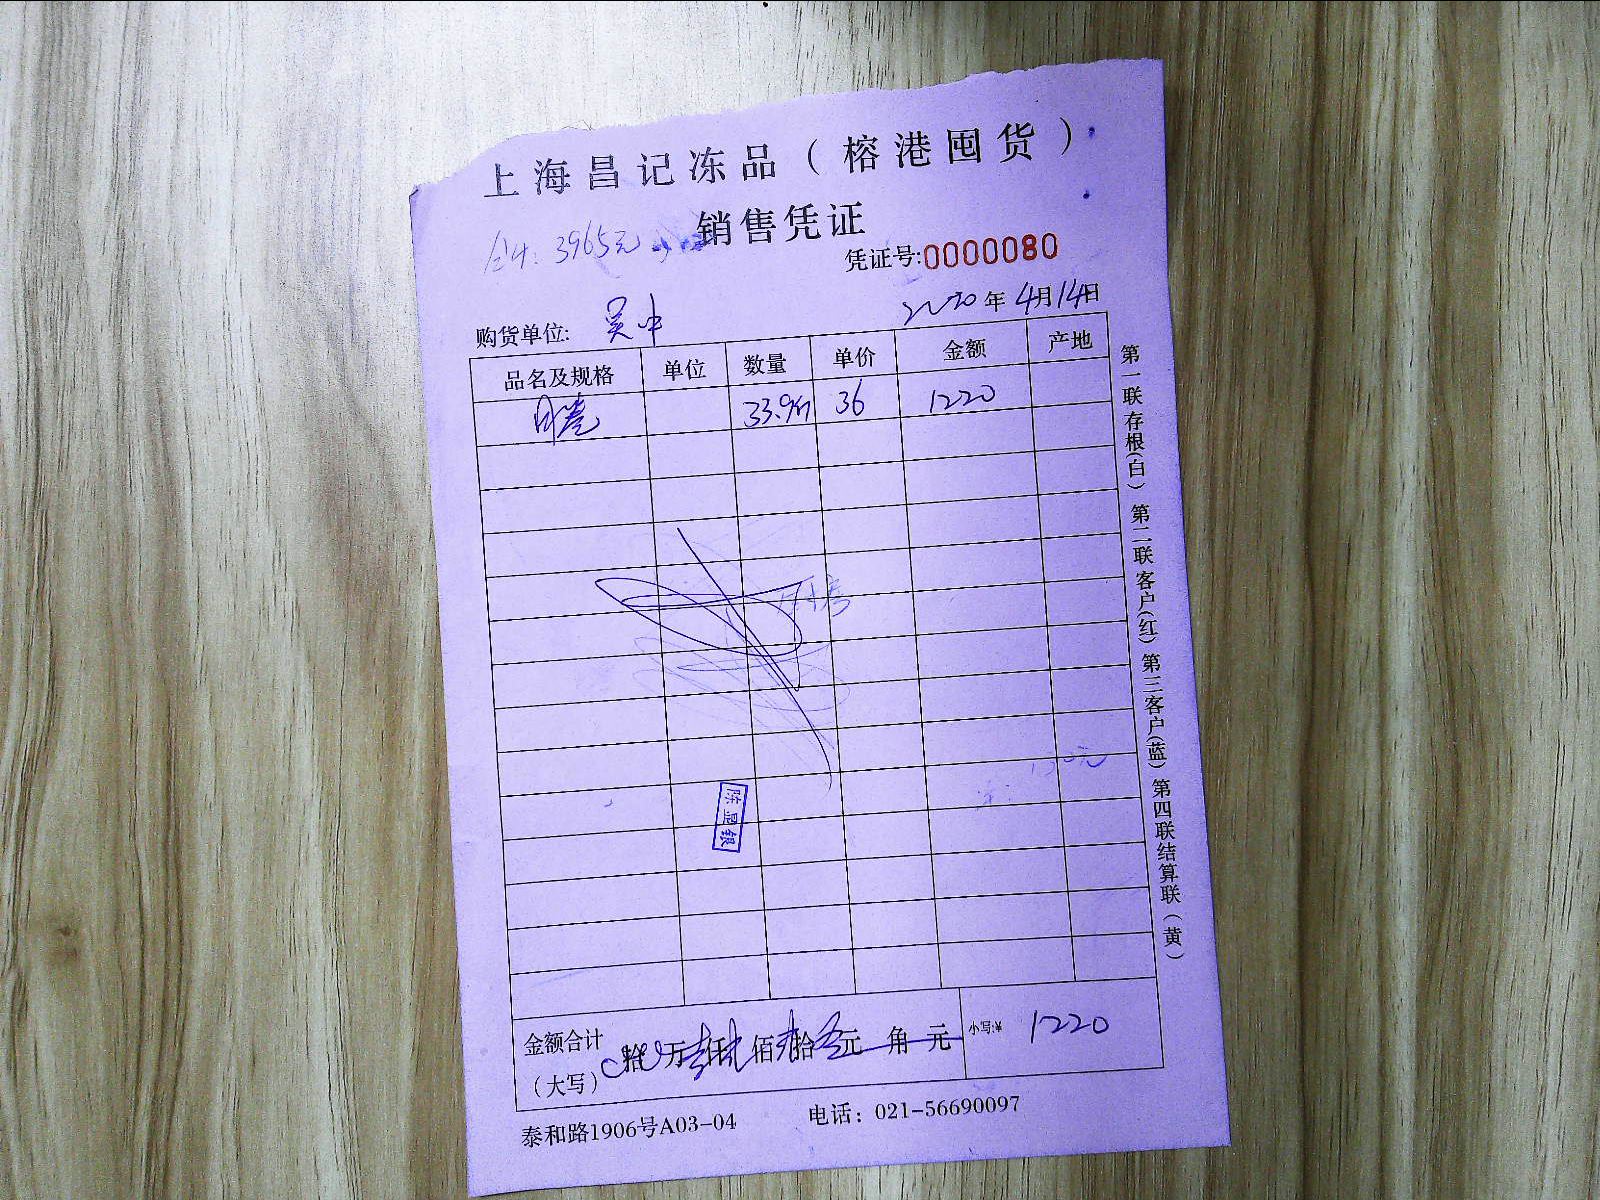 上海昌记冻品（榕港囤货）
销售凭证
合计: 3965元
凭证号:0000080
2020年4月14日
购货单位: 吴中
品名及规格 单位 数量 单价 金额 产地
33.9斤 36 1220
陈显银
金额合计（大写） 拾 万 仟 佰 拾 元 角 元 小写:¥ 1220
泰和路1906号A03-04 电话：021-56690097
第一联存根(白) 第二联客户(红) 第三客户(蓝) 第四联结算联（黄）